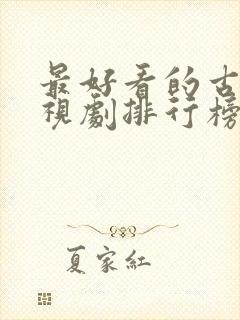 最好看的古
視劇排行榜
夏家紅